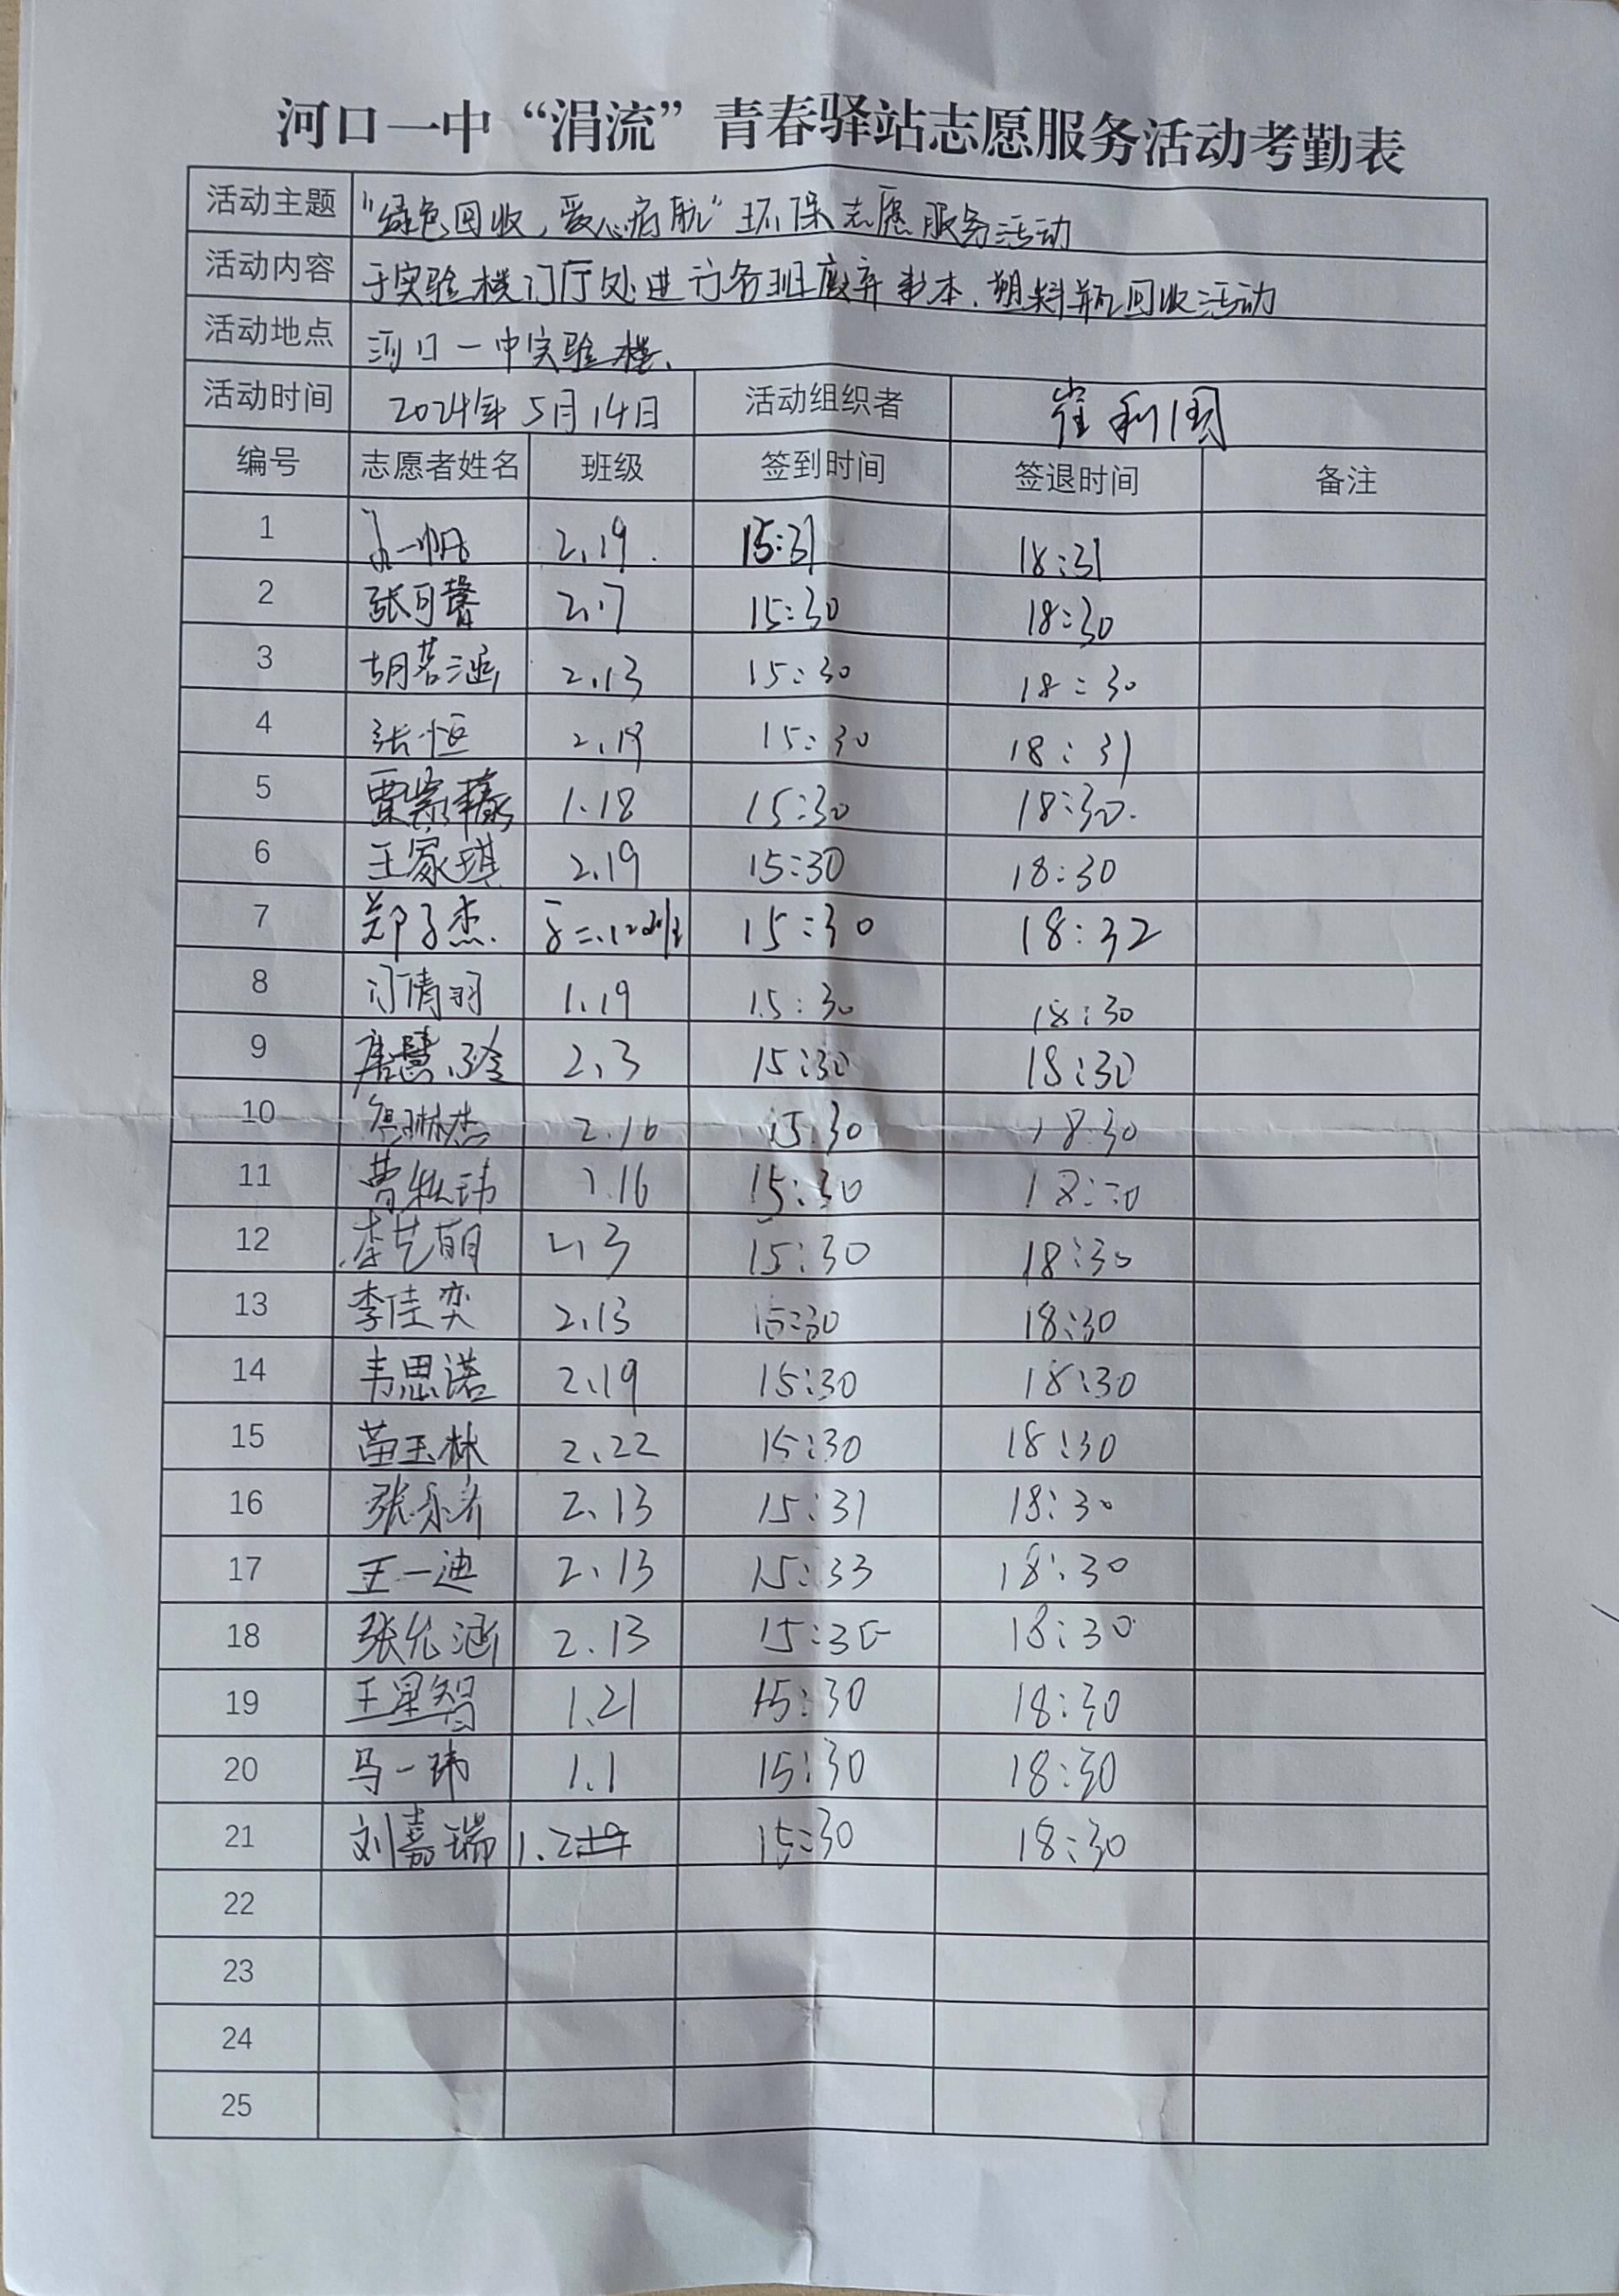 河口一中“涓流”青春驿站志愿服务活动考勤表
活动主题 “绿色回收，爱心启航”环保志愿服务活动
活动内容 于实验楼门厅处进行各班废弃书本、塑料瓶回收活动
活动地点 河口一中实验楼、
活动时间 2024年5月14日 活动组织者 崔利国
编号 志愿者姓名 班级 签到时间 签退时间 备注
1 孙一帆 2.19. 15:31 18:31
2 张可馨 2.7 15:30 18:30
3 胡茗涵 2.13 15:30 18:30
4 张恒 2.19 15:30 18:31
5 贾 1.18 15:30 18:30.
6 王家琪 2.19 15:30 18:30
7 郑子杰 15:30 18:32
8 倩羽 1.19 15:30 18:30
9 唐慧玲 2.3 15:30 18:30
10 2.16 15:30 18:30
11 曹 玮 2.16 15:30 18:30
12 李艺萌 2.3 15:30 18:30
13 李佳奕 2.13 15:30 18:30
14 韦思诺 2.19 15:30 18:30
15 苗玉林 2.22 15:30 18:30
16 张 2.13 15:31 18:30
17 王一迪 2.13 15:33 18:30
18 张允涵 2.13 15:30 18:30
19 王星智 1.21 15:30 18:30
20 马一玮 1.1 15:30 18:30
21 刘嘉瑞 1.2 15:30 18:30
22
23
24
25